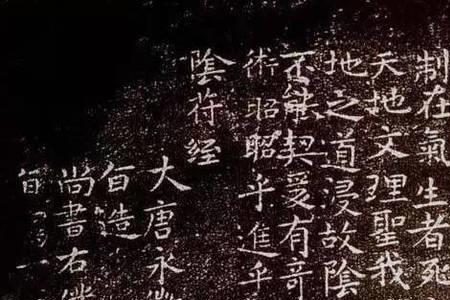 制在氣生者死
天地文理聖我
地之道浸故陰
不能契爰有奇
術昭昭乎進乎
陰苻經
大唐永
百造
尚書右僕